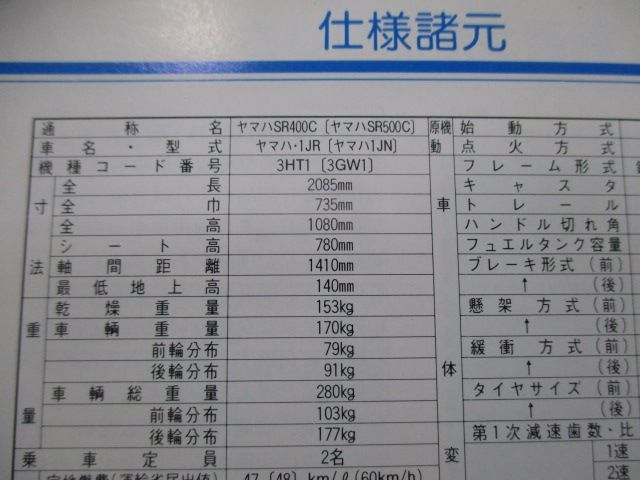 仕様諸元
通称名 ヤマハSR400C〔ヤマハSR500C〕 原機 始動方式
車名・型式 ヤマハ・1JR〔ヤマハ1JN〕 動 点火方式
機種コード番号 3HT1〔3GW1〕 フレーム形式
寸 全長 2085mm キャスタ
全巾 735mm 車 トレール
全高 1080mm ハンドル切れ角
シート高 780mm フュエルタンク容量
法 軸間距離 1410mm ブレーキ形式(前)
最低地上高 140mm ↑(後)
乾燥重量 153kg 懸架方式(前)
重 車輌重量 170kg ↑(後)
前輪分布 79kg 緩衝方式(前)
後輪分布 91kg 体 ↑(後)
車輌総重量 280kg タイヤサイズ(前)
量 前輪分布 103kg ↑(後)
後輪分布 177kg 第1次減速歯数・比
乗車定員 2名 変 1速
定地燃費(運輸省届出値) 47〔48〕km/ℓ(60km/h) 2速